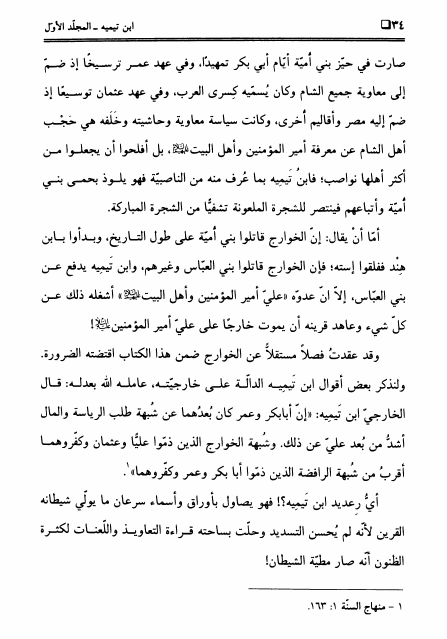 ٣٤ ❏ ابن تيميه ـ المجلّد الأوّل
صارت في حيّز بني أُميّة أيّام أبي بكر تمهيدًا، وفي عهد عمر ترسيخًا إذ ضمّ
إلى معاوية جميع الشام وكان يُسمّيه كِسرى العرب، وفي عهد عثمان توسيعًا إذ
ضمّ إليه مصر وأقاليم أُخرى، وكانت سياسة معاوية وحاشيته وخَلَفه هي حَجْب
أهل الشام عن معرفة أمير المؤمنين وأهل البيت، بل أفلحوا أن يجعلوا من
أكثر أهلها نواصب؛ فابنُ تَيميه بما عُرف منه من الناصبيّة فهو يلوذ بحمى بني
أُميّة وأتباعهم فينتصر للشجرة الملعونة تشفّيًا من الشجرة المباركة.
أمّا أنْ يقال: إنّ الخوارج قاتلوا بني أُميّة على طول التاريخ، وبدأوا بابن
هِنْد ففلقوا إسته؛ فإن الخوارج قاتلوا بني العبّاس وغيرهم، وابن تَيميه يدفع عن
بني العبّاس، إلاّ انّ عدوّه «عليّ أمير المؤمنين وأهل البيت» أشغله ذلك عن
كلّ شيء وعاهد قرينه أن يموت خارجًا على عليّ أمير المؤمنين!
وقد عقدتُ فصلاً مستقلاًّ عن الخوارج ضمن هذا الكتاب اقتضته الضرورة.
ولنذكر بعض أقوال ابن تَيميه الدالّة على خارجيّته، عامله الله بعدله: قال
الخارجيّ ابن تَيميه: «إنّ أبابكر وعمر كان بُعدُهما عن شبهة طلب الرياسة والمال
أشدُّ من بُعد عليّ عن ذلك. وشبهة الخوارج الذين ذمّوا عليًّا وعثمان وكفّروهما
أقربُ من شُبهة الرافضة الذين ذمّوا أبا بكر وعمر وكفّروهما»١.
أيُّ رِعديد ابن تَيميه؟! فهو يصاول بأوراق وأسماء سرعان ما يولّي شيطانه
القرين لأنّه لم يُحسن التسديد وحلّت بساحته قراءة التعاويذ واللّعنات لكثرة
الظنون أنّه صار مطيّة الشيطان!
١ - منهاج السنّة ١: ١٦٣.